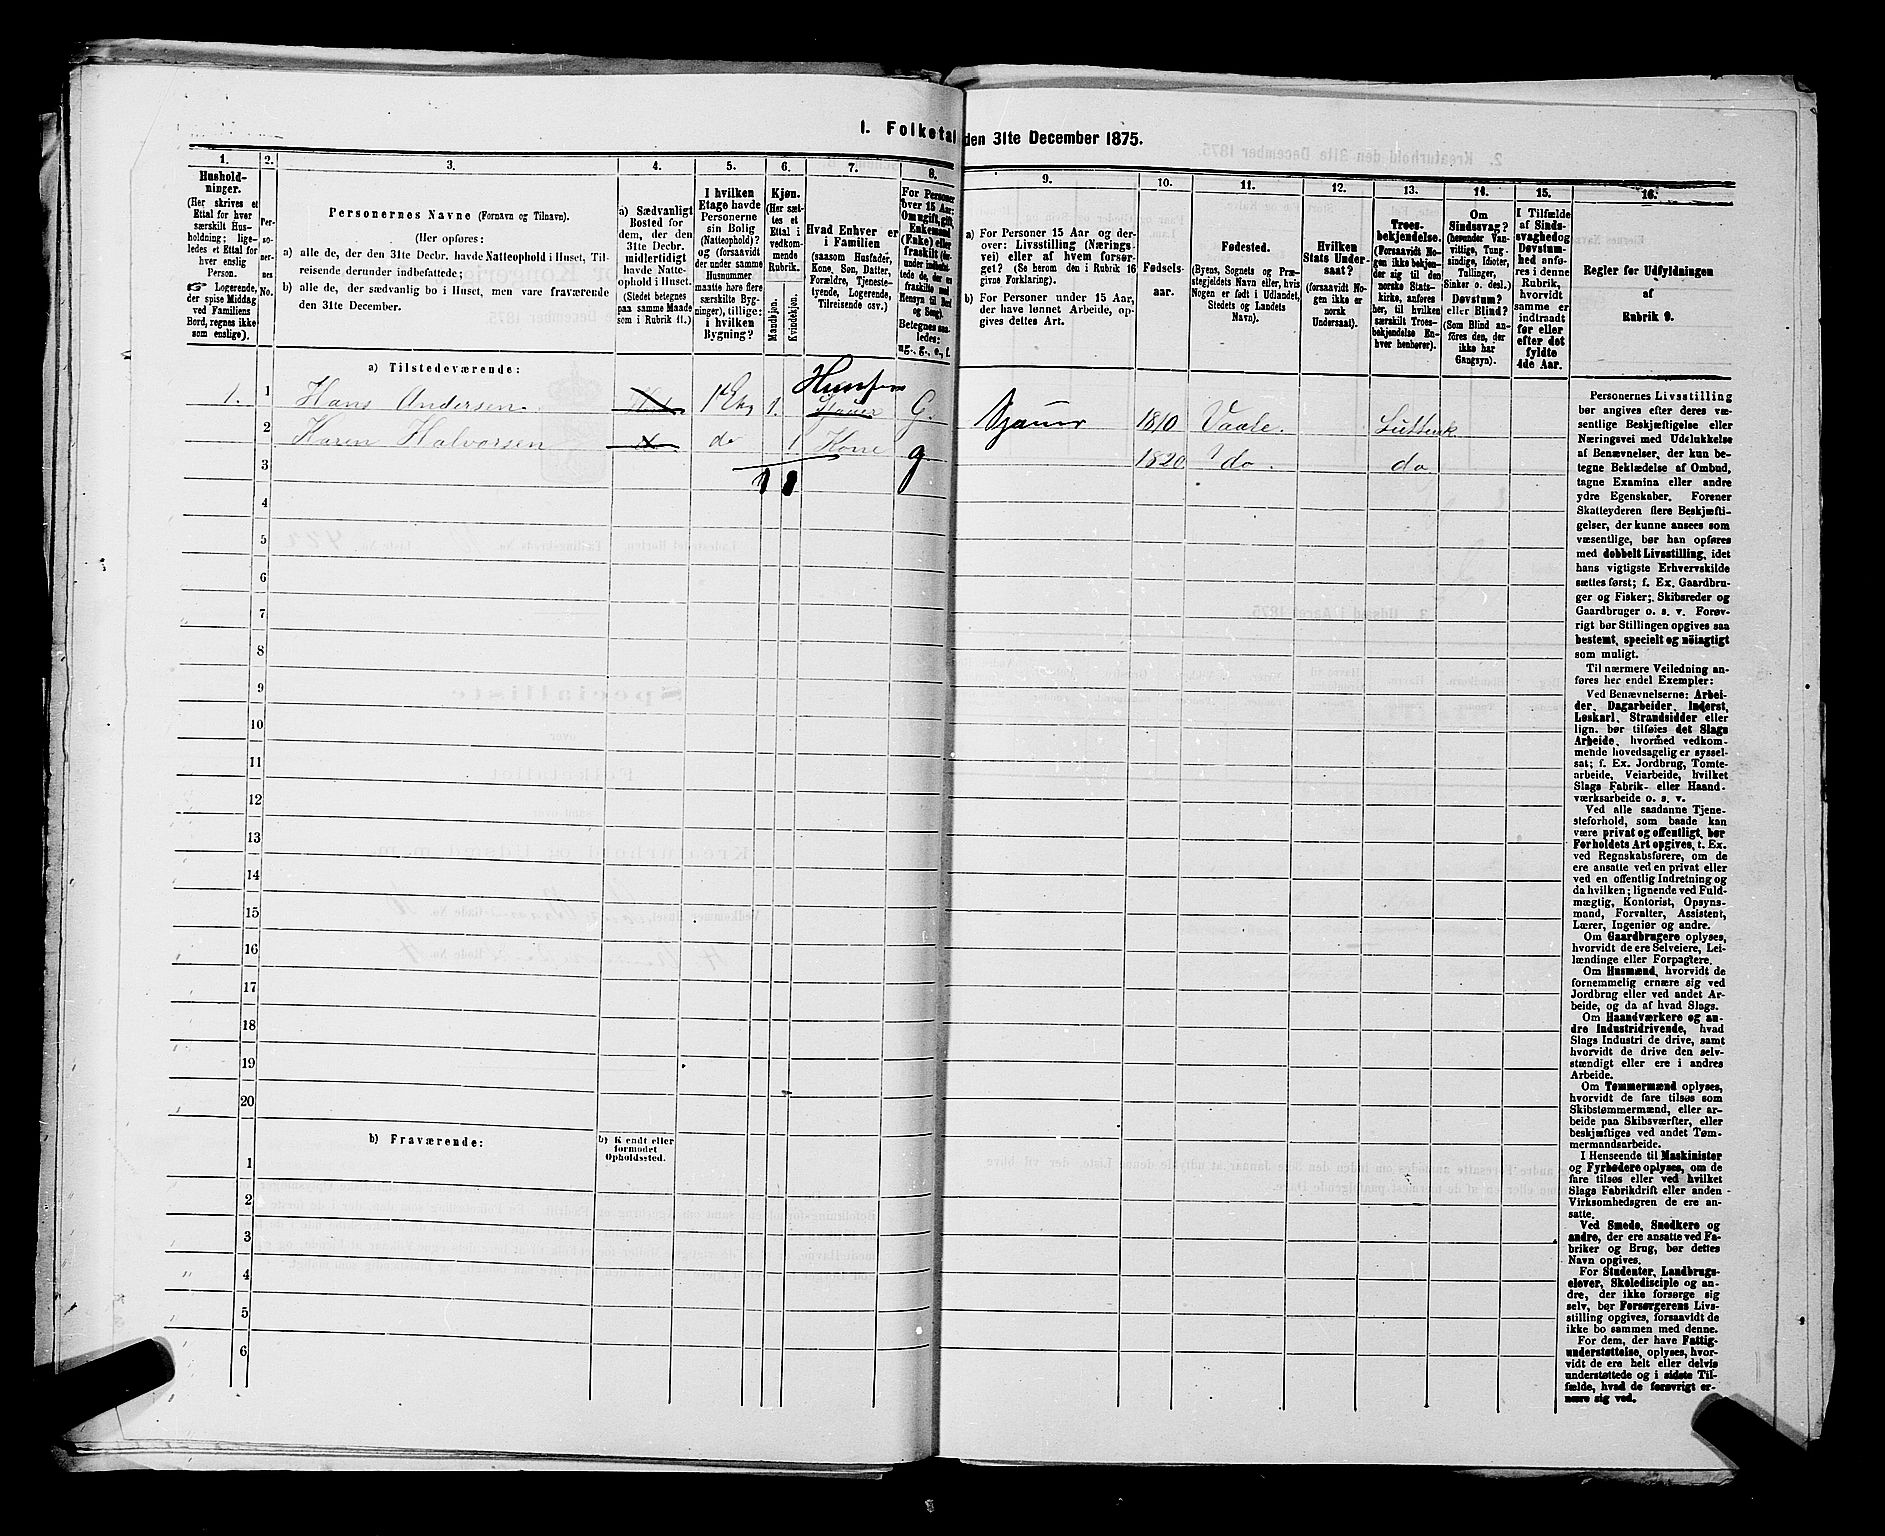 1. Folketal den 31te December 1875.
1.
2.
3.
4.
5.
6.
7.
8.
9.
10.
11.
12.
13.
14.
15.
16.
Hushold-
ninger.
(Her skrives et
Ettal for hver
særskilt Hus-
holdning; lige-
ledes et Ettal for
hver enslig
Person.
☞ Logerende,
der spise Middag
ved Familiens
Bord, regnes ikke
som enslige).
Per-
so-
ner-
nes
No.
Personernes Navne (Fornavn og Tilnavn).
(Her opføres:
a) alle de, der den 31te Decbr. havde Natteophold i Huset, Til-
reisende derunder indbefattede;
b) alle de, der sædvanlig bo i Huset, men vare fraværende
den 31te December.
a) Sædvanligt
Bosted for
dem, der den
31te Decbr.
midlertidigt
havde Natte-
ophold i Huset.
(Stedet betegnes
paa samme Maade
som i Rubrik 11.)
I hvilken
Etage havde
Personerne
sin Bolig
(Natteophold)?
og (forsaavidt
der under samme
Husnummer
maatte høre flere
særskilte Byg-
ninger), tillige:
i hvilken
Bygning?
Kjøn.
(Her sæt-
tes et
Ettal i
vedkom-
mende
Rubrik.
Mandkjøn.
Kvindekjøn.
Hvad Enhver er
i Familien
(saasom Husfader,
Kone, Søn, Datter,
Forældre, Tjeneste-
tyende, Logerende,
Tilreisende osv.)
For Personer
over 15 Aar:
Om ugift, gift,
Enkemand
(Enke) eller
fraskilt
Betegnes saa-
ledes:
ug., g., e., f.
a) For Personer 15 Aar og der-
over: Livsstilling (Nærings-
vei) eller af hvem forsør-
get? (Se herom den i Rubrik 16
givne Forklaring).
b) For Personer under 15 Aar,
der have lønnet Arbeide, op-
gives dettes Art.
Fødsels-
aar.
Fødested.
(Byens, Sognets og Præ-
stegjeldets Navn eller, hvis
Nogen er født i Udlandet,
Stedets og Landets
Navn).
Hvilken
Stats Under-
saat?
(forsaavidt No-
gen ikke er
norsk
Undersaat).
Troes-
bekjendelse.
(Forsaavidt No-
gen ikke bekjen-
der sig til den
norske Stats-
kirke, anføres
her, til hvilken
særskilt Troes-
bekjendelse En-
hver henhører).
Om
Sindssvag?
(herunder Van-
vittige, Tung-
sindige, Idioter,
Tullinger,
Sinker o. desl.)
Døvstum?
eller Blind?
(Som Blind an-
føres den, der
ikke har
Gangsyn).
I Tilfælde
af Sinds-
svaghed og
Døvstum-
hed anfø-
res i denne
Rubrik,
hvorvidt
samme er
indtraadt
før eller
efter det
fyldte
4de Aar.
Regler for Udfyldningen
af
Rubrik 9.
a) Tilstedeværende:
1. 1 Hans Andersen 1 1. G. 1810 Vaale. Luthersk
2 Karen Halvorsen do 1 Kone g 1820 do. do
3 1 1
4
5
6
7
8
9
10
11
12
13
14
15
16
17
18
19
20
b) Fraværende:
b) Kjendt eller
formodet
Opholdssted.
1
2
3
4
5
6
Personernes Livsstilling
bør angives efter deres væ-
sentlige Beskjæftigelse eller
Næringsvei med Udelukkelse
af Benævnelser, der kun be-
tegne Beklædelse af Ombud,
tagne Examina eller andre
ydre Egenskaber. Forener
Skatteyderen flere Beskjæfti-
gelser, der kunne ansees som
væsentlige, bør han opføres
med dobbelt Livsstilling, idet
hans vigtigste Erhvervskilde
sættes først; f. Ex. Gaardbru-
ger og Fisker; Skibsreder og
Gaardbruger o. s. v. Forøv-
rigt bør Stillingen opgives saa
bestemt, specielt og nøiagtigt
som muligt.
Til nærmere Veiledning an-
føres her endel Exempler:
Ved Benævnelserne: Arbei-
der, Dagarbeider, Inderst,
Løskarl, Strandsidder eller
lign. bør tilføies det Slags
Arbeide, hvormed vedkom-
mende hovedsagelig er syssel-
sat; f. Ex. Jordbrug, Tomte-
arbeide, Veiarbeide, hvilket
Slags Fabrik- eller Haand-
værksarbeide o. s. v.
Ved alle saadanne Tjene-
steforhold, som baade kan
være privat og offentligt, bør
Forholdets Art opgives, t. Ex.
ved Regnskabsførere, om de
ere ansatte ved en privat eller
ved en offentlig Indretning og
da hvilken; lignende ved Fuld-
mægtig, Kontorist, Opsyns-
mand, Forvalter, Assistent,
Lærer, Ingeniør og andre.
Om Gaardbrugere oplyses,
hvorvidt de ere Selveiere, Lei-
lændinge eller Forpagtere.
Om Husmænd, hvorvidt de
fornemmelig ernære sig ved
Jordbrug eller ved andet Ar-
beide, og da af hvad Slags.
Om Haandværkere og an-
dre Industridrivende, hvad
Slags Industri de drive, samt
hvorvidt de drive den selv-
stændigt eller ere i andres
Arbeide.
Om Tømmermænd oplyses,
hvorvidt de fare tilsøs som
Skibstømmermænd, eller ar-
beide paa Skibsværfter, eller
beskjæftiges ved andet Tøm-
mermandsarbeide.
I Henseende til Maskinister
og Fyrbødere oplyses, om de
fare tilsøs eller ved hvilket
Slags Fabrikdrift eller anden
Virksomhedsgren de ere an-
satte.
Ved Smede, Snedkere og
andre, der ere ansatte ved Fa-
briker og Brug, bør dettes
Navn opgives.
For Studenter, Landbrugs-
elever, Skoledisciple og an-
dre, der ikke forsørge sig
selv, bør Forsørgerens Livs-
stilling opgives, forsaavidt de
ikke bo sammen med denne.
For dem, der have Fattig-
understøttelse, oplyses, hvor-
vidt de ere helt eller delvis
understøttede og i sidste Til-
fælde, hvad de forøvrigt er-
nære sig ved.